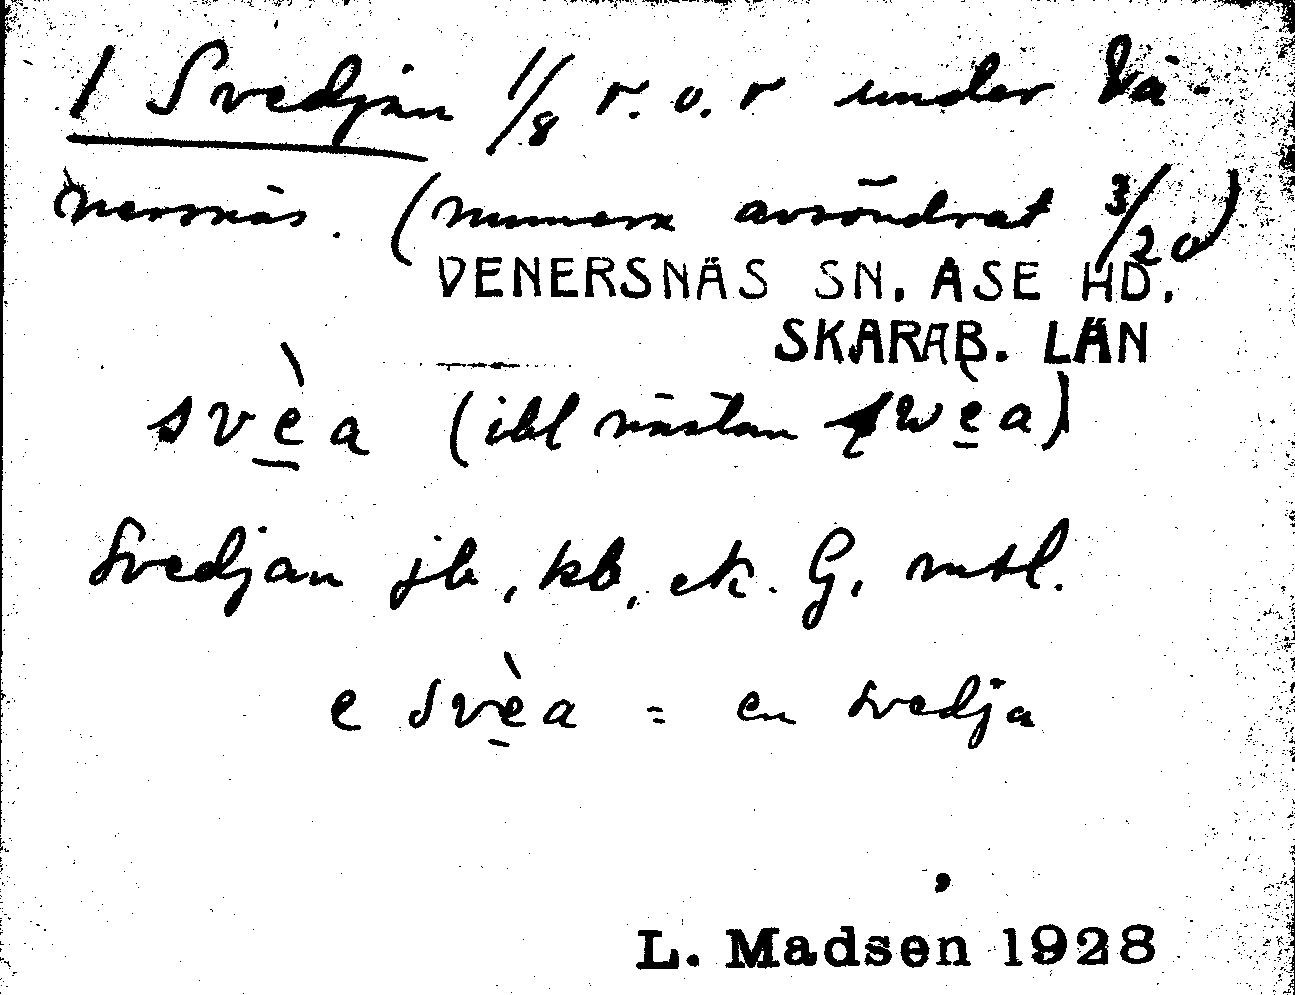 1 Svedjan 1/8 r. o. r under Vä-
nersnäs. (numera avsöndrat 3/20)
VENERSNÄS SN. ASE HD.
SKARAB. LÄN
svèa (ibl nästan swèa)
Svedjan jb, kb, ek. G, mtl.
e svèa = en svedja
L. Madsen 1928